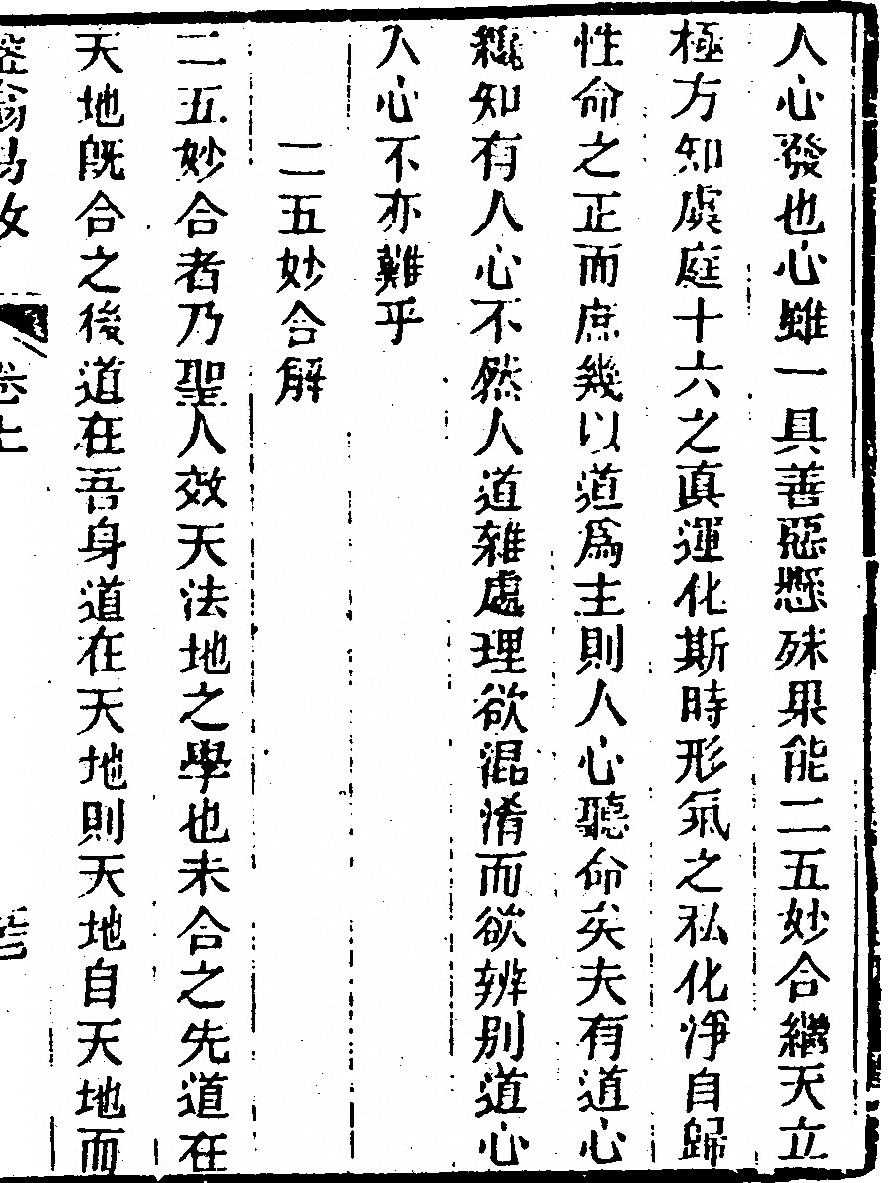 人心發也心雖一具善惡懸殊果能二五妙合繼天立
極方知虞庭十六之真運化斯時形氣之私化淨自歸
性命之正而庶幾以道爲主則人心聽命矣夫有道心
纔知有人心不然人道雜處理欲混淆而欲辨别道心
人心不亦難乎
二五妙合解
二五妙合者乃聖人效天法地之學也未合之先道在
天地旣合之後道在吾身道在天地則天地自天地而
卷上